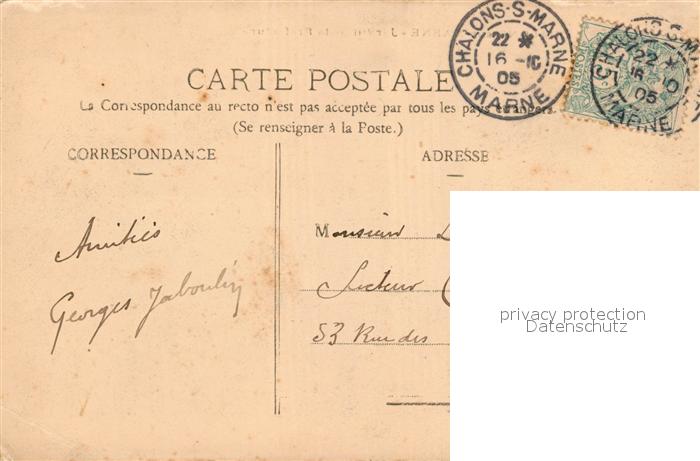 CARTE POSTALE
La Correspondance au recto n'est pas acceptée par tous les pays étrangers.
(Se renseigner à la Poste.)
CHALONS-S-MARNE
22 *
16 -10
05
MARNE
CHALONS-S-MARNE
22 *
16 -10
05
MARNE
CORRESPONDANCE
ADRESSE
Amitiés
Georges Jaboulin
Monsieur
53 Rue des
privacy protection
Datenschutz